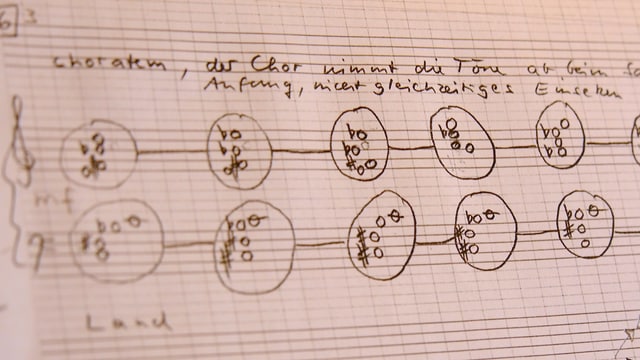 6 3
choratem, der Chor nimmt die Töne ab beim
Anfang, nicht gleichzeitiges Einsetzen
mf
Land